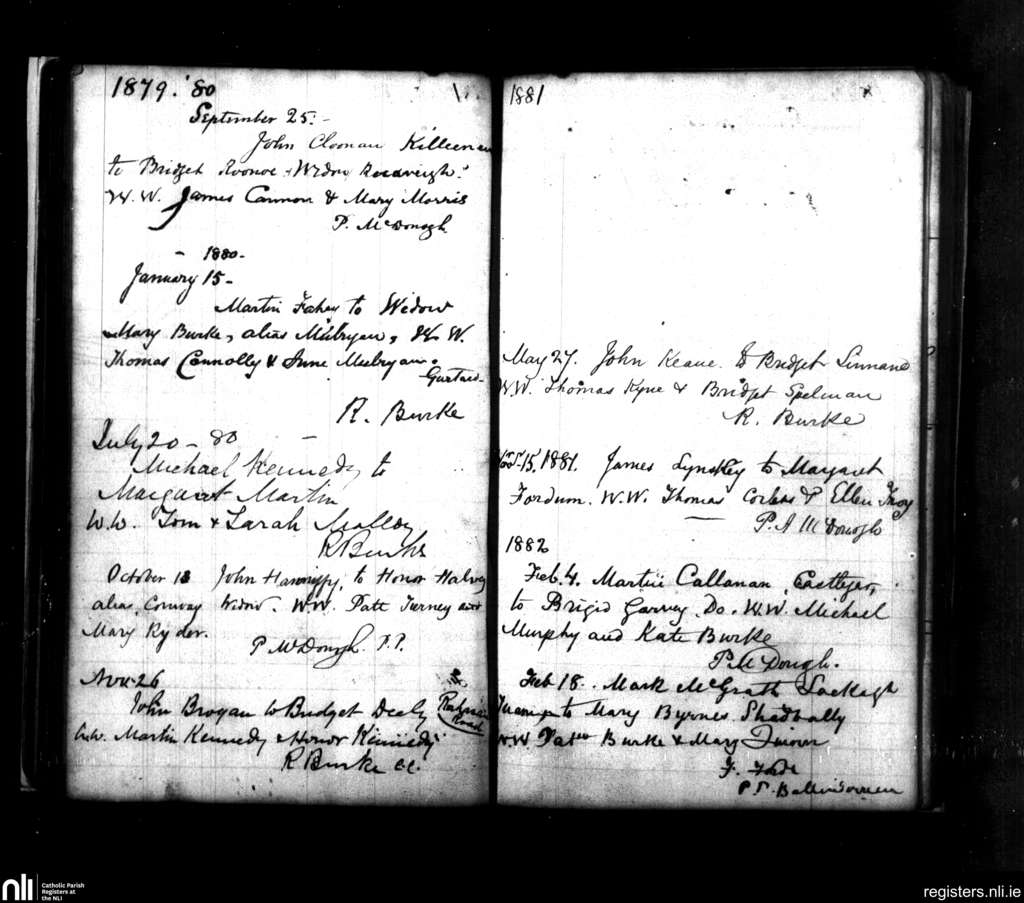 1879. '80
September 25.-
John Cloonan Killeenan
to Bridget Widow
W.W. James Cannon & Mary Morris
P. McDonogh
- 1880-
January 15-
Martin Fahey to Widow
Mary Burke, alias Mulryan, W W.
Thomas Connolly & June Mulryan.
R. Burke
July 20 - 80
Michael Kennedy to
Margaret Martin
W.W. Tom & Sarah Malloy
R Burke
October 18 John to Honor
alias Conway Widow. W.W. Patt Tierney and
Mary Ryder.
P McDonogh. P.P.
Nov. 26
John Brogan to Bridget Deely
W.W. Martin Kennedy & Honor Kennedy
Road
R Burke CC.
1881
May 27. John Keane to Bridget Linnane
W.W. Thomas Kyne & Bridget Spelman
R. Burke
15, 1881. James Lynskey to Margaret
Fordum. W.W. Thomas & Ellen
P. A McDonogh
1882
Feb. 4. Martin Callanan,
to Brigid Garvey Do. W.W. Michael
Murphy and Kate Burke
P. McDonogh.
Feb 18. Mark McGrath Lackagh
to Mary Byrnes Shadbally
W.W Patt Burke & Mary
P.P.
nli
Catholic Parish
Registers at
the NLI
registers.nli.ie